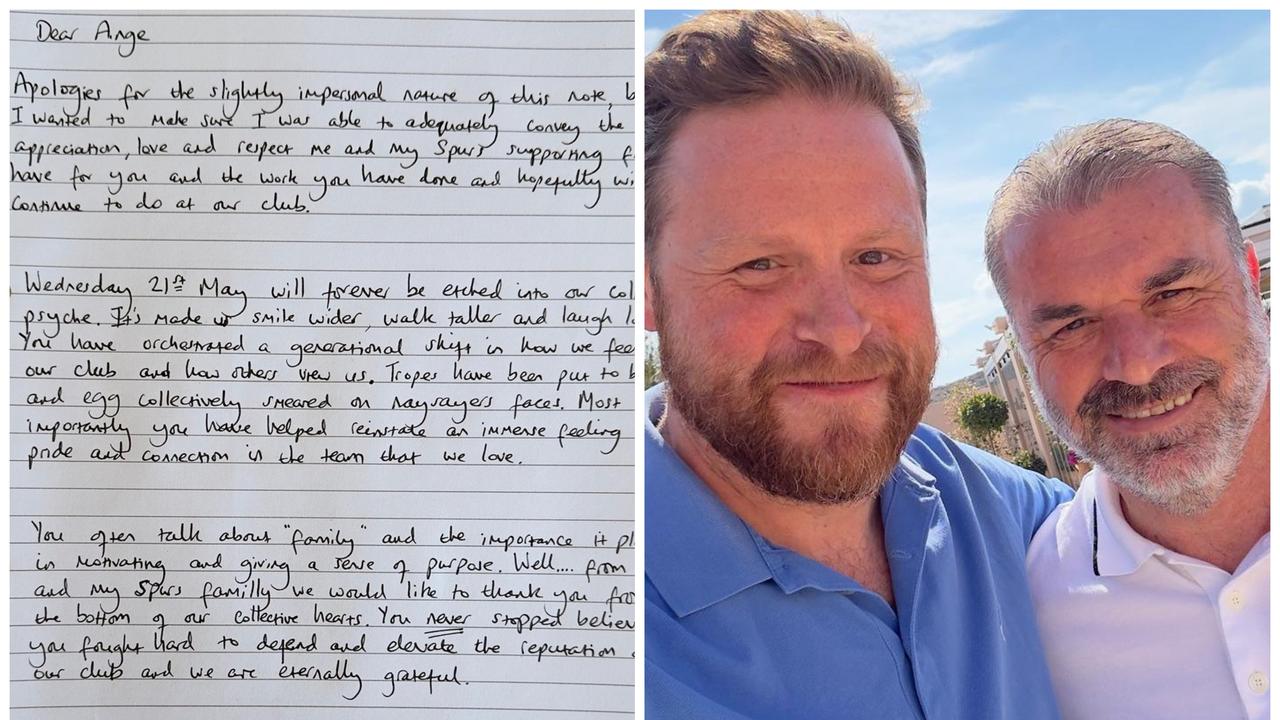 Dear Ange
Apologies for the slightly impersonal nature of this note, b
I wanted to make sure I was able to adequately convey the
appreciation, love and respect me and my Spurs supporting f
have for you and the work you have done and hopefully wi
continue to do at our club.
Wednesday 21st May will forever be etched into our col
psyche. It's made us smile wider, walk taller and laugh l
You have orchestrated a generational shift in how we fee
our club and how others view us. Tropes have been put to b
and egg collectively smeared on naysayers faces. Most
importantly you have helped reinstate an immense feeling
pride and connection in the team that we love.
You often talk about "family" and the importance it pl
in motivating and giving a sense of purpose. Well.... from
and my Spurs familly we would like to thank you fro
the bottom of our collective hearts. You never stopped believ
you fought hard to defend and elevate the reputation
our club and we are eternally grateful.